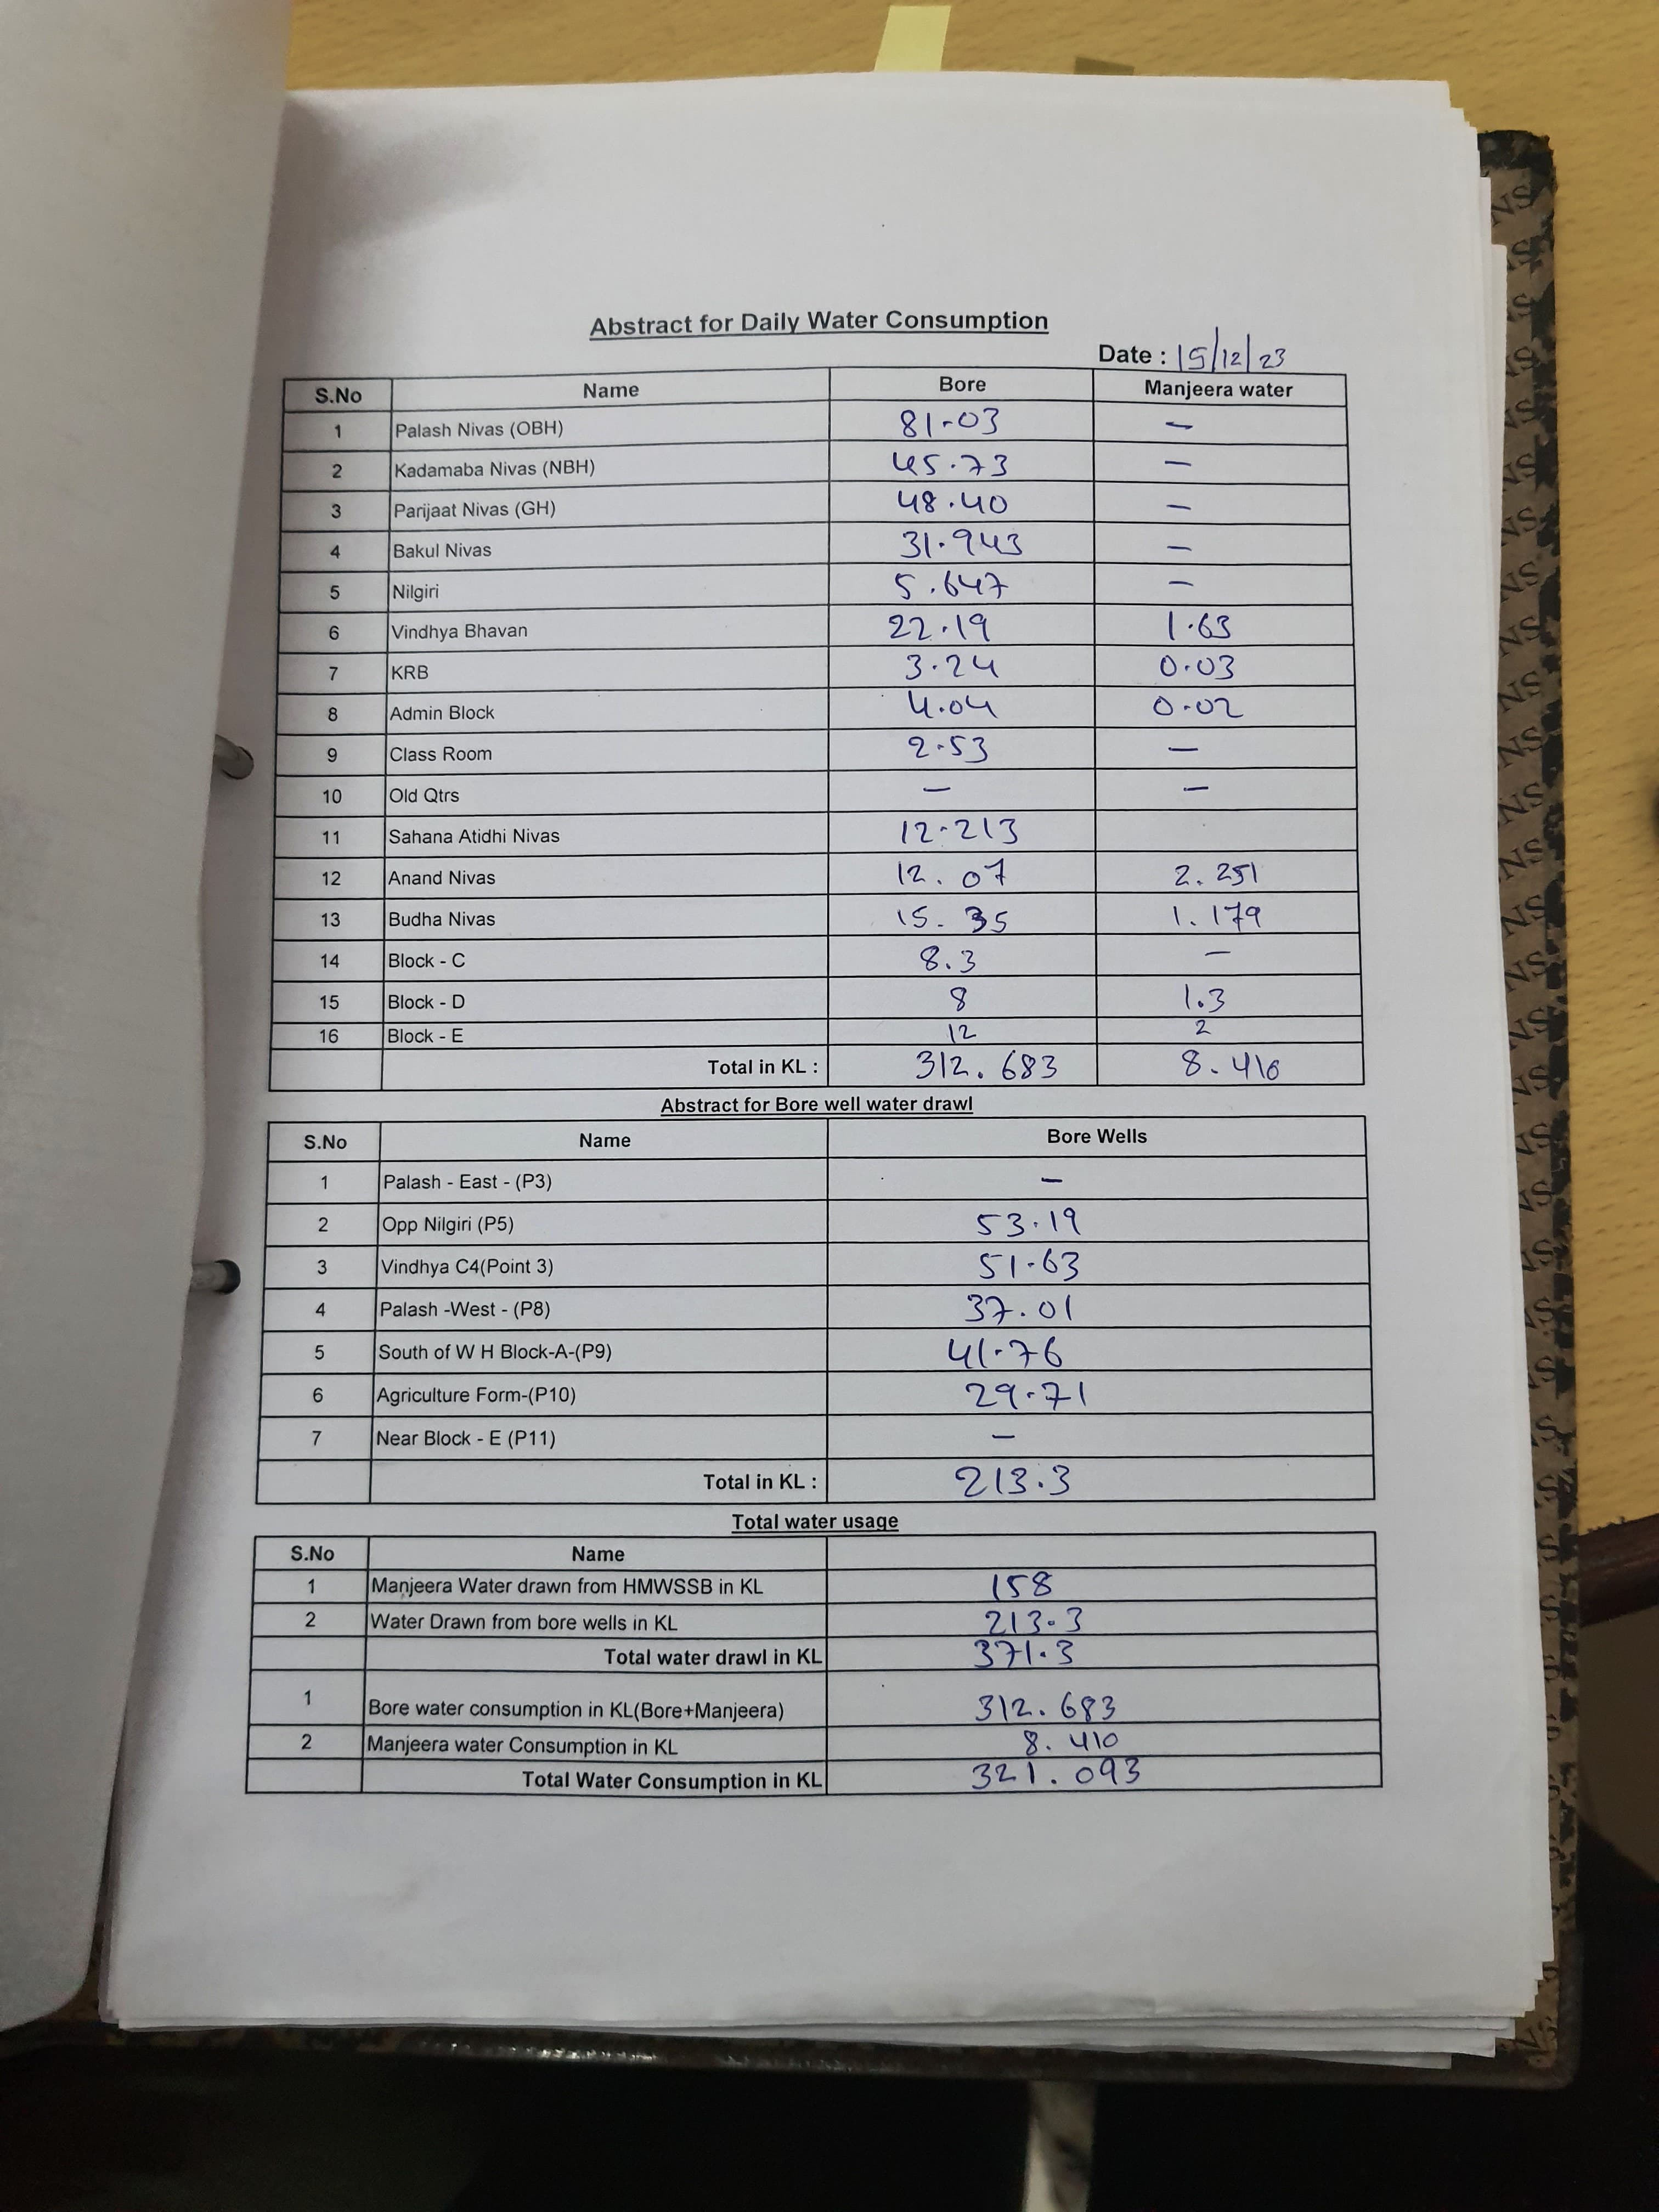 Abstract for Daily Water Consumption
Date : 15/12/23
S.No Name Bore Manjeera water
1 Palash Nivas (OBH) 81.03 —
2 Kadamaba Nivas (NBH) 45.73 —
3 Parijaat Nivas (GH) 48.40 —
4 Bakul Nivas 31.943 —
5 Nilgiri 5.647 —
6 Vindhya Bhavan 22.19 1.63
7 KRB 3.24 0.03
8 Admin Block 4.04 0.02
9 Class Room 2.53 —
10 Old Qtrs — —
11 Sahana Atidhi Nivas 12.213
12 Anand Nivas 12.07 2.251
13 Budha Nivas 15.35 1.179
14 Block - C 8.3 —
15 Block - D 8 1.3
16 Block - E 12 2
Total in KL : 312.683 8.410
Abstract for Bore well water drawl
S.No Name Bore Wells
1 Palash - East - (P3) —
2 Opp Nilgiri (P5) 53.19
3 Vindhya C4(Point 3) 51.63
4 Palash -West - (P8) 37.01
5 South of W H Block-A-(P9) 41.76
6 Agriculture Form-(P10) 29.71
7 Near Block - E (P11) —
Total in KL : 213.3
Total water usage
S.No Name
1 Manjeera Water drawn from HMWSSB in KL 158
2 Water Drawn from bore wells in KL 213.3
Total water drawl in KL 371.3
1 Bore water consumption in KL(Bore+Manjeera) 312.683
2 Manjeera water Consumption in KL 8.410
Total Water Consumption in KL 321.093